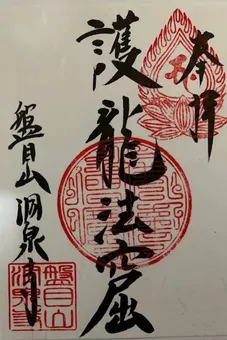 奉拝
護龍法窟
盤目山洞泉寺
盤目山